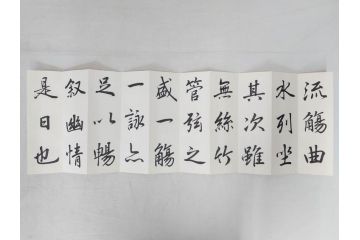 流觴曲
水列坐
其次雖
無絲竹
管弦之
盛一觴
一詠亦
足以暢
叙幽情
是日也